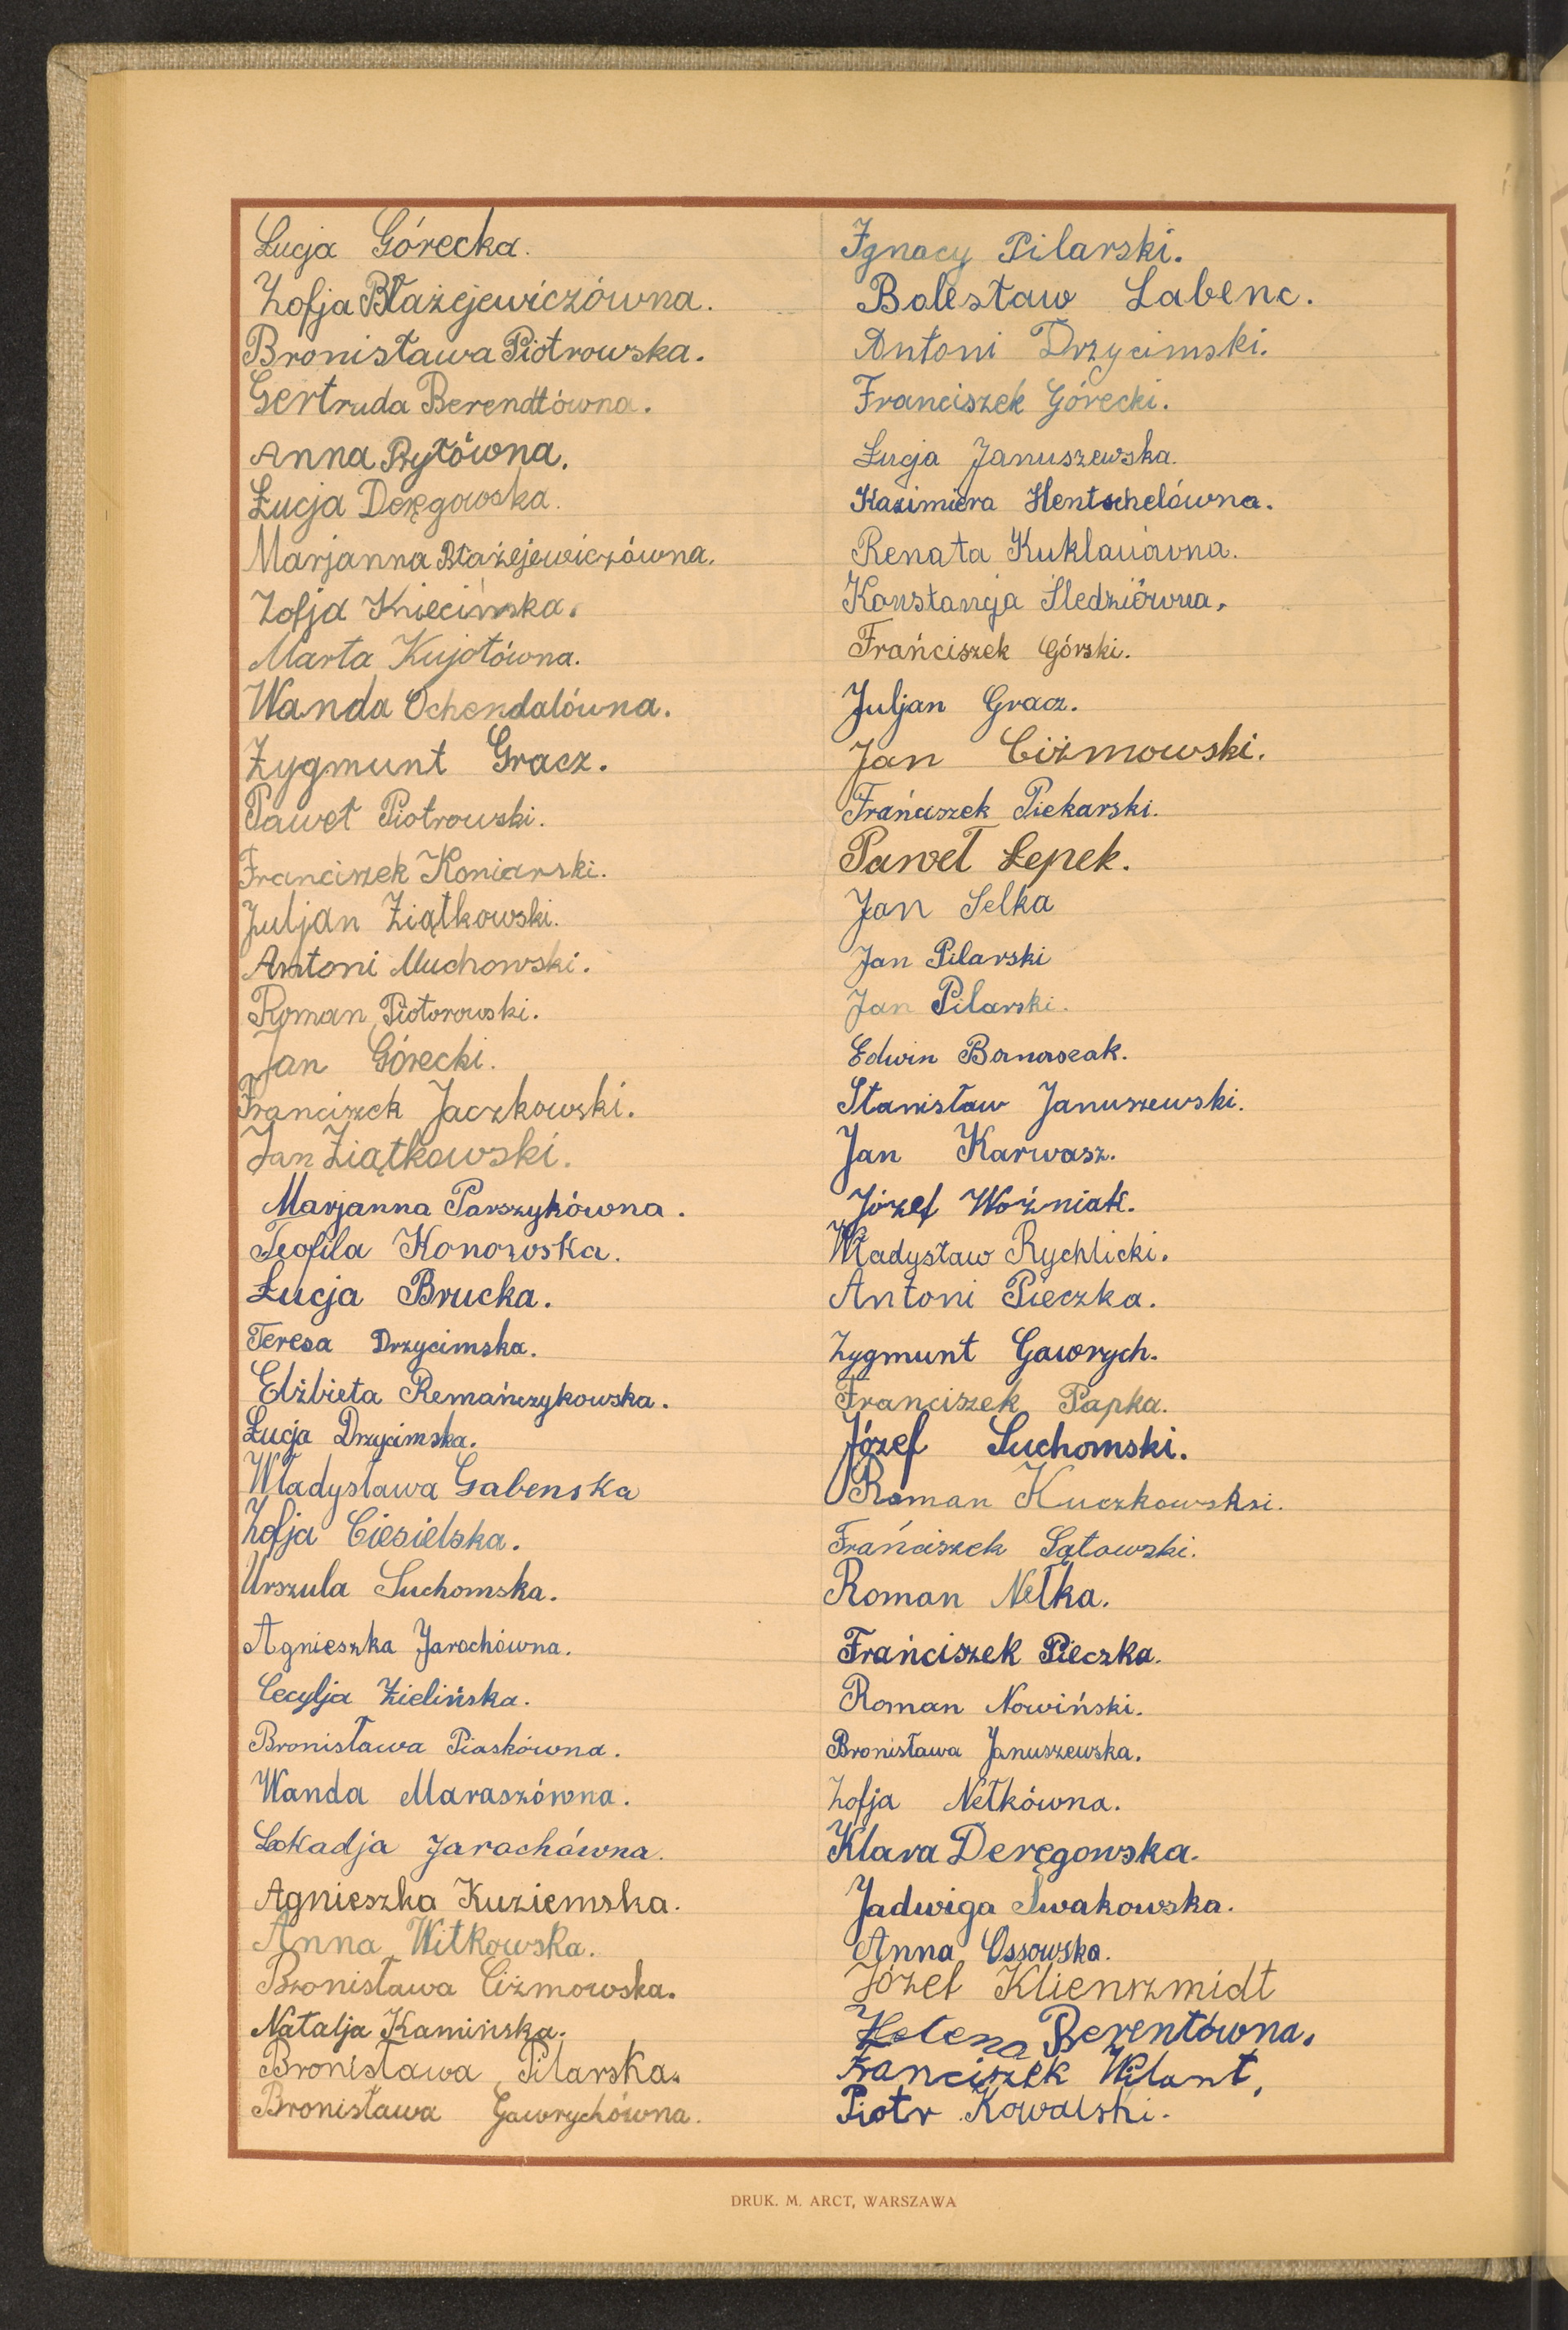 Łucja Górecka.
Zofja Błażejewiczówna.
Bronisława Piotrowska.
Gertruda Berendtówna.
Anna Rytówna.
Łucja Deręgowska.
Marjanna Błażejewiczówna.
Zofja Kniecińska.
Marta Kujotówna.
Wanda Ochendalówna.
Zygmunt Gracz.
Paweł Piotrowski.
Franciszek Koniarski.
Juljan Ziątkowski.
Antoni Muchowski.
Roman Piotorowski.
Jan Górecki.
Franciszek Jaczkowski.
Jan Ziątkowski.
Marjanna Parszykówna.
Teofila Konowska.
Łucja Brucka.
Teresa Drzycimska.
Elżbieta Remańczykowska.
Łucja Drzycimska.
Władysława Gabenska
Zofja Ciesielska.
Urszula Suchomska.
Agnieszka Jarochówna.
Cecylja Zielińska.
Bronisława Piaskówna.
Wanda Maraszówna.
Leokadja Jarochówna.
Agnieszka Kuziemska.
Anna Witkowska.
Bronisława Ciżmowska.
Natalja Kamińska.
Bronisława Pilarska.
Bronisława Gawrychówna.
Ignacy Pilarski.
Bolesław Labenc.
Antoni Drzycimski.
Franciszek Górecki.
Łucja Januszewska.
Kazimiera Hentschelówna.
Renata Kuklauówna.
Konstancja Śledziówna.
Frańciszek Górski.
Juljan Gracz.
Jan Ciżmowski.
Frańciszek Piekarski.
Paweł Łepek.
Jan Selka
Jan Pilarski
Jan Pilarski.
Edwin Banaszak.
Stanisław Januszewski.
Jan Karwasz.
Józef Woźniak.
Władysław Rychlicki.
Antoni Pieczka.
Zygmunt Gawrych.
Franciszek Papka.
Józef Suchomski.
Roman Kuczkowsksi.
Frańciszek Sątowski.
Roman Nełka.
Frańciszek Pieczka.
Roman Nowiński.
Bronisława Januszewska.
Zofja Nełkówna.
Klara Deręgowska.
Jadwiga Swakowska.
Anna Ossowska.
Józef Klienszmidt
Helena Berentówna.
Franciszek Wilant,
Piotr Kowalski.
DRUK. M. ARCT, WARSZAWA